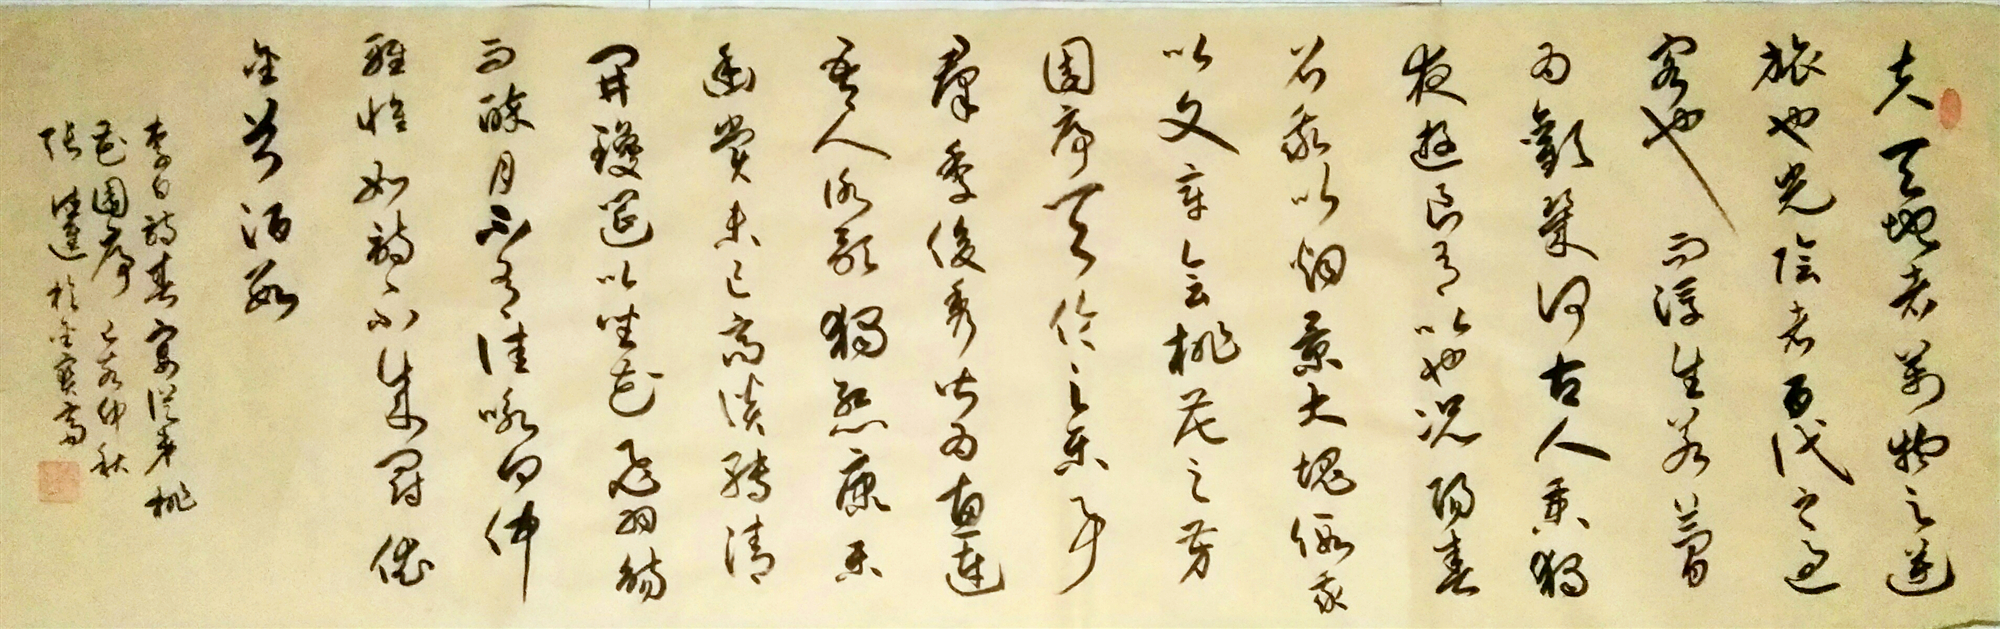 夫天地者萬物之逆
旅也光陰者百代之過
客也而浮生若夢
為歡幾何古人秉燭
夜遊良有以也況陽春
召我以烟景大塊假我
以文章会桃花之芳
園序天倫之樂事
羣季俊秀皆為惠連
吾人詠歌獨慙康樂
幽賞未已高談轉清
開瓊筵以坐花飛羽觴
而醉月不有佳詠何伸
雅懷如詩不成罰依
金谷酒數
李白詩春宴從弟桃
花園序 己亥仲秋
張 於金寶齋